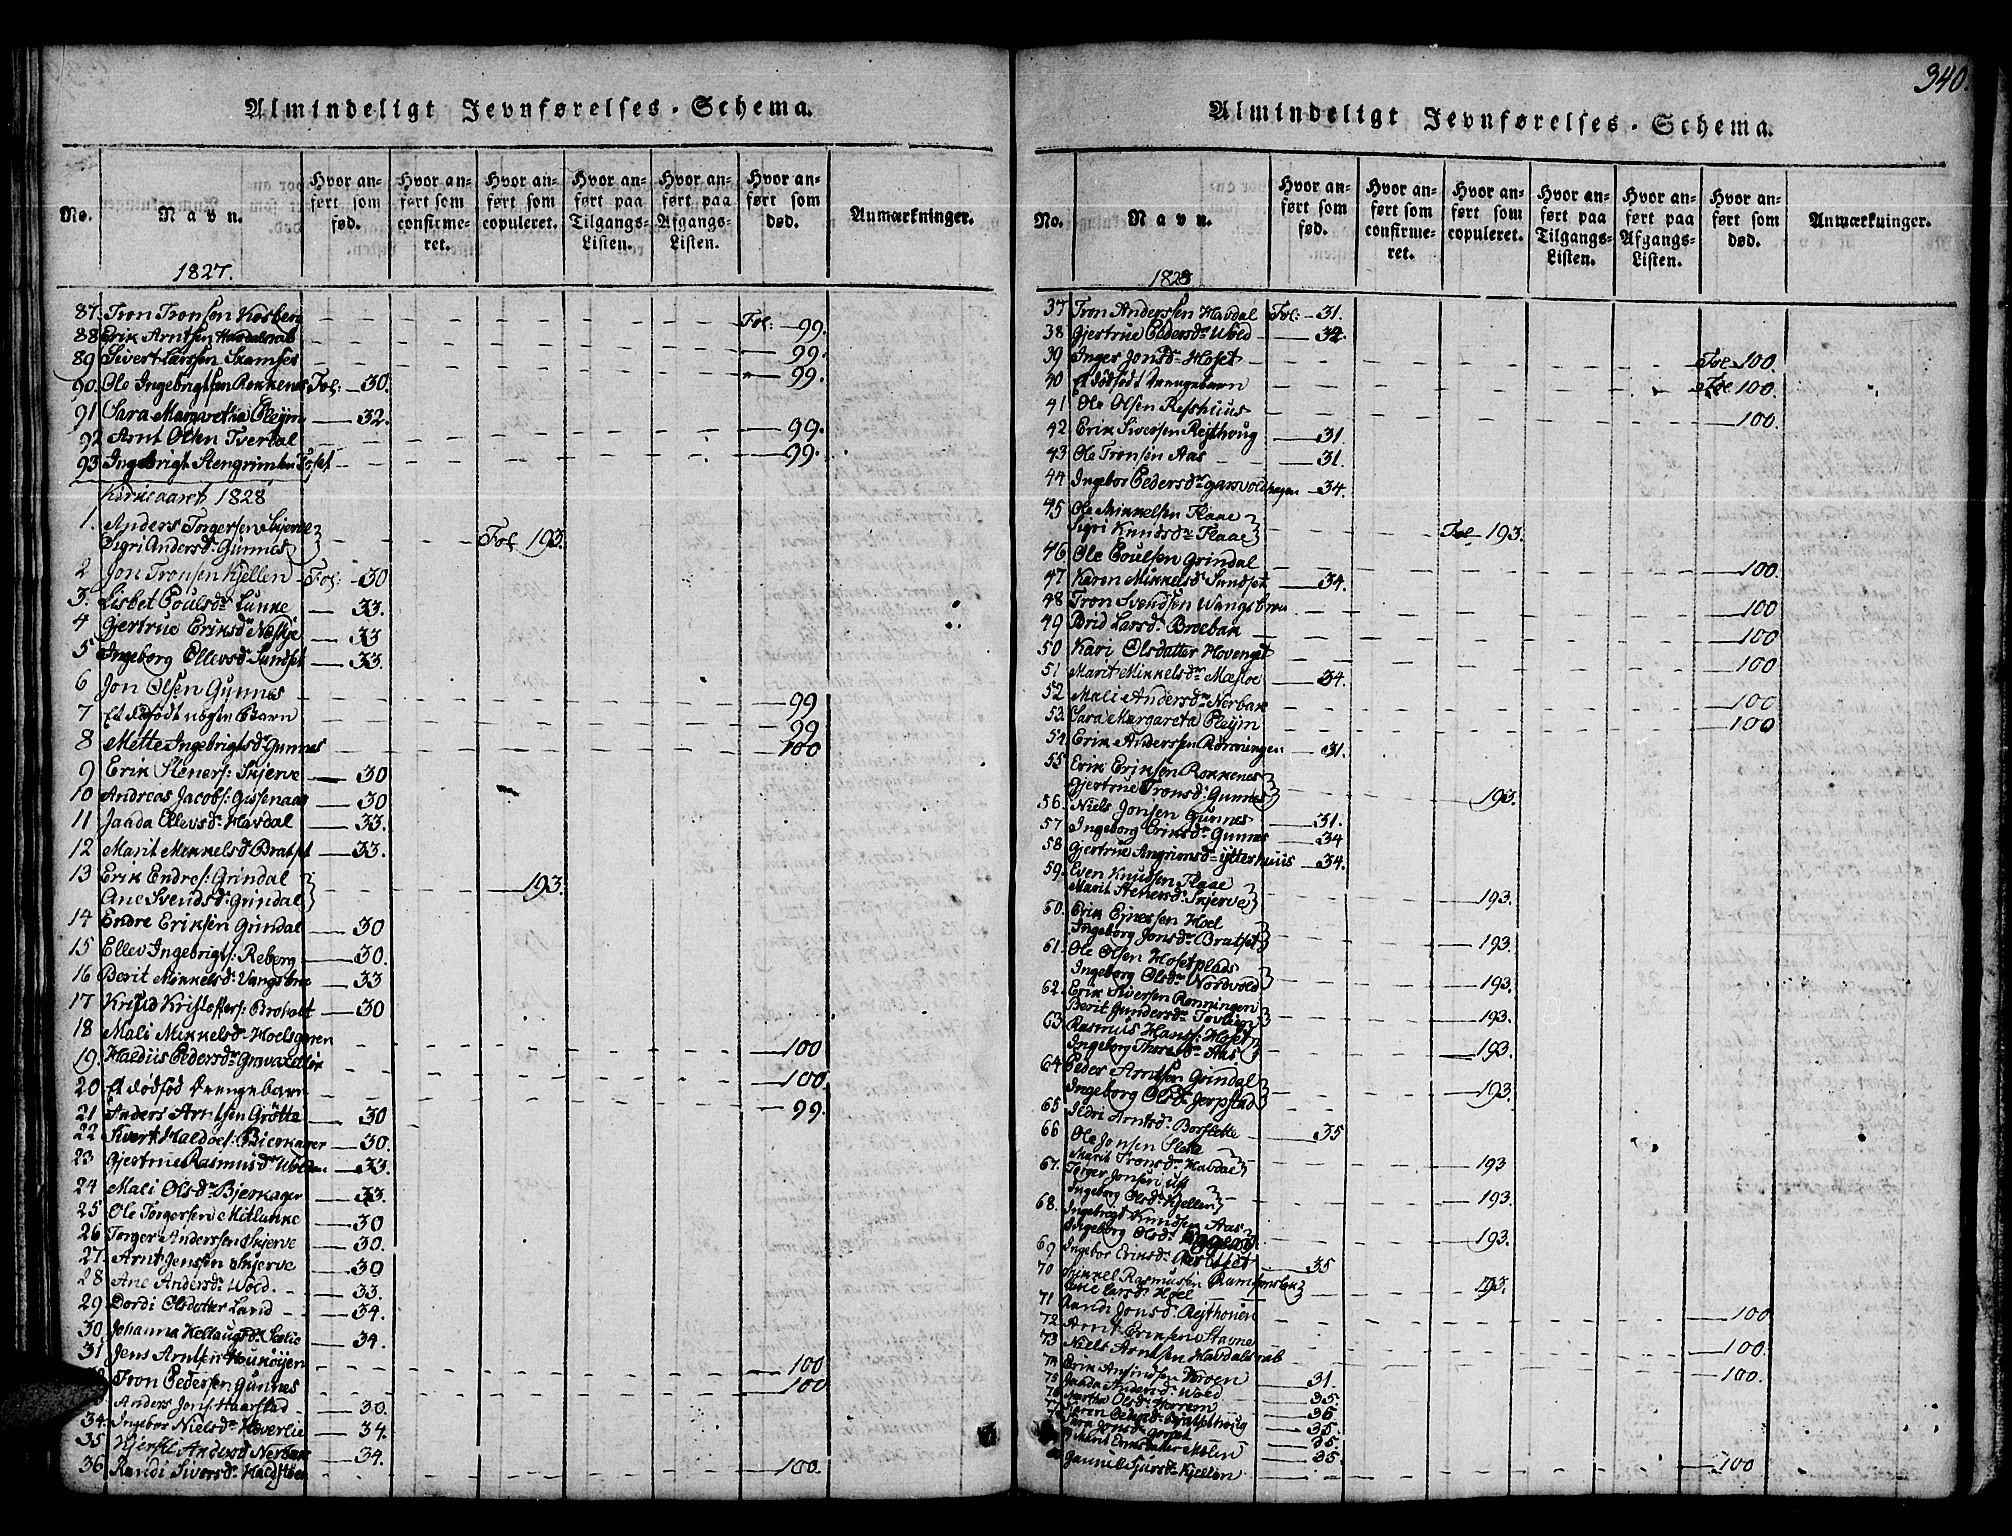 340.
Almindeligt Jevnførelses-Schema.
No. Navn. Hvor anført som fød. Hvor anført som confirmeret. Hvor anført som copuleret. Hvor anført paa Tilgangs-Listen. Hvor anført paa Afgangs-Listen. Hvor anført som død. Anmærkninger.
1827.
87. Tron Tronsen Kosberg Fol: 99.
88 Erik Arntsen Havdalsrab 99.
89 Sivert Larssen Stamses 99.
90. Ole Ingebrigtsen Rokkenes Fol: 30.
91 Sara Margretha Pleijm 32.
92 Arnt Olsen Tverdal 99.
93 Ingebrigt Stengrimsen Foset 99.
Kirkeaaret 1828
1. Anders Torgersen Skjerve
Sigri Andersdr. Gunnes Fol 193.
2 Jon Tronsen Kjellen Fol: 30
3. Lisbet Poulsdr Lunne 33.
4 Gjertrue Eriksdr Neskje 33
5 Ingeborg Ellevsdr Sundset 33.
6 Jon Olsen Gunnes 99
7 Et dødfødt Barn 99
8 Mette Ingebrigtsdr Gunnes 100
9 Erik Steners: Skjerve 30
10 Andreas Jacobs: Gissenaas 30
11 Janda Ellevsdr. Havdal 33.
12 Marit Mikkelsdr Bratset 33.
13 Erik Endres: Grindal
Ane Svendsdr: Grindal 193.
14 Endre Eriksen Grindal 30
15 Ellev Ingebrigts: Reberg 30.
16 Berit Mikkelsdr. Vangsbroe 33
17 Kristofers: Broholt 30
18 Mali Mikkelsdr. Hoelsgaren 100
19. Haldiis Pedersdr Gravaklier 100.
20 Et dødfød Drengebarn 99.
21 Anders Arntsen Grøtte 30
22 Sivert Haldos: Bierkager 30.
23 Gjertrue Rasmusdr Wolden 33.
24 Mali Olsdr Bjerkager 33.
25 Ole Torgersen Mitlunne 30
26 Torger Anderssen Skjerve 30.
27 Arnt Jensen Skjerve 30
28 Ane Andersdr. Wold 33.
29 Dordi Olsdatter Land 34.
30. Johanna Kellaugsdr 34.
31 Jens Arntsen 100
Tron Pedersen Gunnes 100
Anders Jons: Haarstad 30.
34. Ingebor Nielsdr Hoverlie 34.
35 Anders Nerbak 34.
36 Randi Siversdr. Haldstøen 100.
Almindeligt Jevnførelses-Schema.
No. Navn. Hvor anført som fød. Hvor anført som confirmeret. Hvor anført som copuleret. Hvor anført paa Tilgangs-Listen. Hvor anført paa Afgangs-Listen. Hvor anført som død. Anmærkninger.
1828
37 Tron Anderssen Havdal Fol: 31.
38 Gjertrue Pedersdr. Wold 34.
39 Inger Jonsdr. Hoset Fol 100.
40 Et dödfödt Drengebarn Fol 100.
41 Ole Olsen Refshuus 100.
42 Erik Siversen Rejthoug 31
43 Ole Tronsen Aas 31.
44 Ingebor Pedersdr 34.
45 Ole Mikkelsen Flaae
Sigri Knudsdr. Flaae Fol 193.
46 Ole Poulsen Grindal 100.
47 Karen Mikkelsdr Sundset 34.
48 Tron Svendsen Wangsbroe 100
49 Brid Larsdr. Broebak 100
50 Kari Olsdatter Hovenget 100
51 Marit Mikkelsdr. Mæsloe 34.
52 Mali Andersdr. Nerbak 100
53. Sara Margareta Pleijm 100
54. Erik Anderssen Rönningen 31.
55 Erik Eriksen Rokkenes
Gjertrue Tronsdr: Gunnes 193.
56. Niels Jonsen Gunnes 31.
57 Ingeborg Eriksdr. Gunnes 34
58 Gjertrue Angrimsdr. Ytterhuus 34.
59. Even Knudsen Flaae
Marit Stenersdr: Skjerve 193.
60. Erik Ejnessen Hoel
Ingeborg Jonsdr. Bratset 193.
61. Ole Olsen Hosetplads
Ingeborg Olsdr. Nordvold 193.
62. Erik Siversen Rønningen
Berit Gundersdr. 193.
63. Rasmus Hans: Hoset
Ingeborg Aas 193.
64 Peder Arntsen Grindal
Ingeborg Olsdr. Jerpstad 193.
65 Ildri Arntsdr. Borslette 35
66 Ole Jonsen Slette
Marit Tronsdr. Havdal 193
67. Torger Jonsen
Ingeborg Olsdr. Kjellen 193.
68. Ingebrigt Knudsen Aas
Ingeborg Olsdr. 193.
69 Ingebor Eriksdr. 35
70 Mikkel Rasmusen Ramsemslen
Ane Larsdr: Hoel 193.
71 Randi Jonsdr. Rejthouen 100
72 Arnt Eriksen Stavne 100.
73 Niels Arntsen Havdalsrab 100.
74 Erik 31.
75 Janda Andersdr. Wold 35.
76 Martha Olsdr. Horrem 35
Karen Pedersdr. Bratsethoug 35.
Sara Jonsdr. 35.
Marit Molen 35.
Gunnil Sjursdr. Kjellen 100